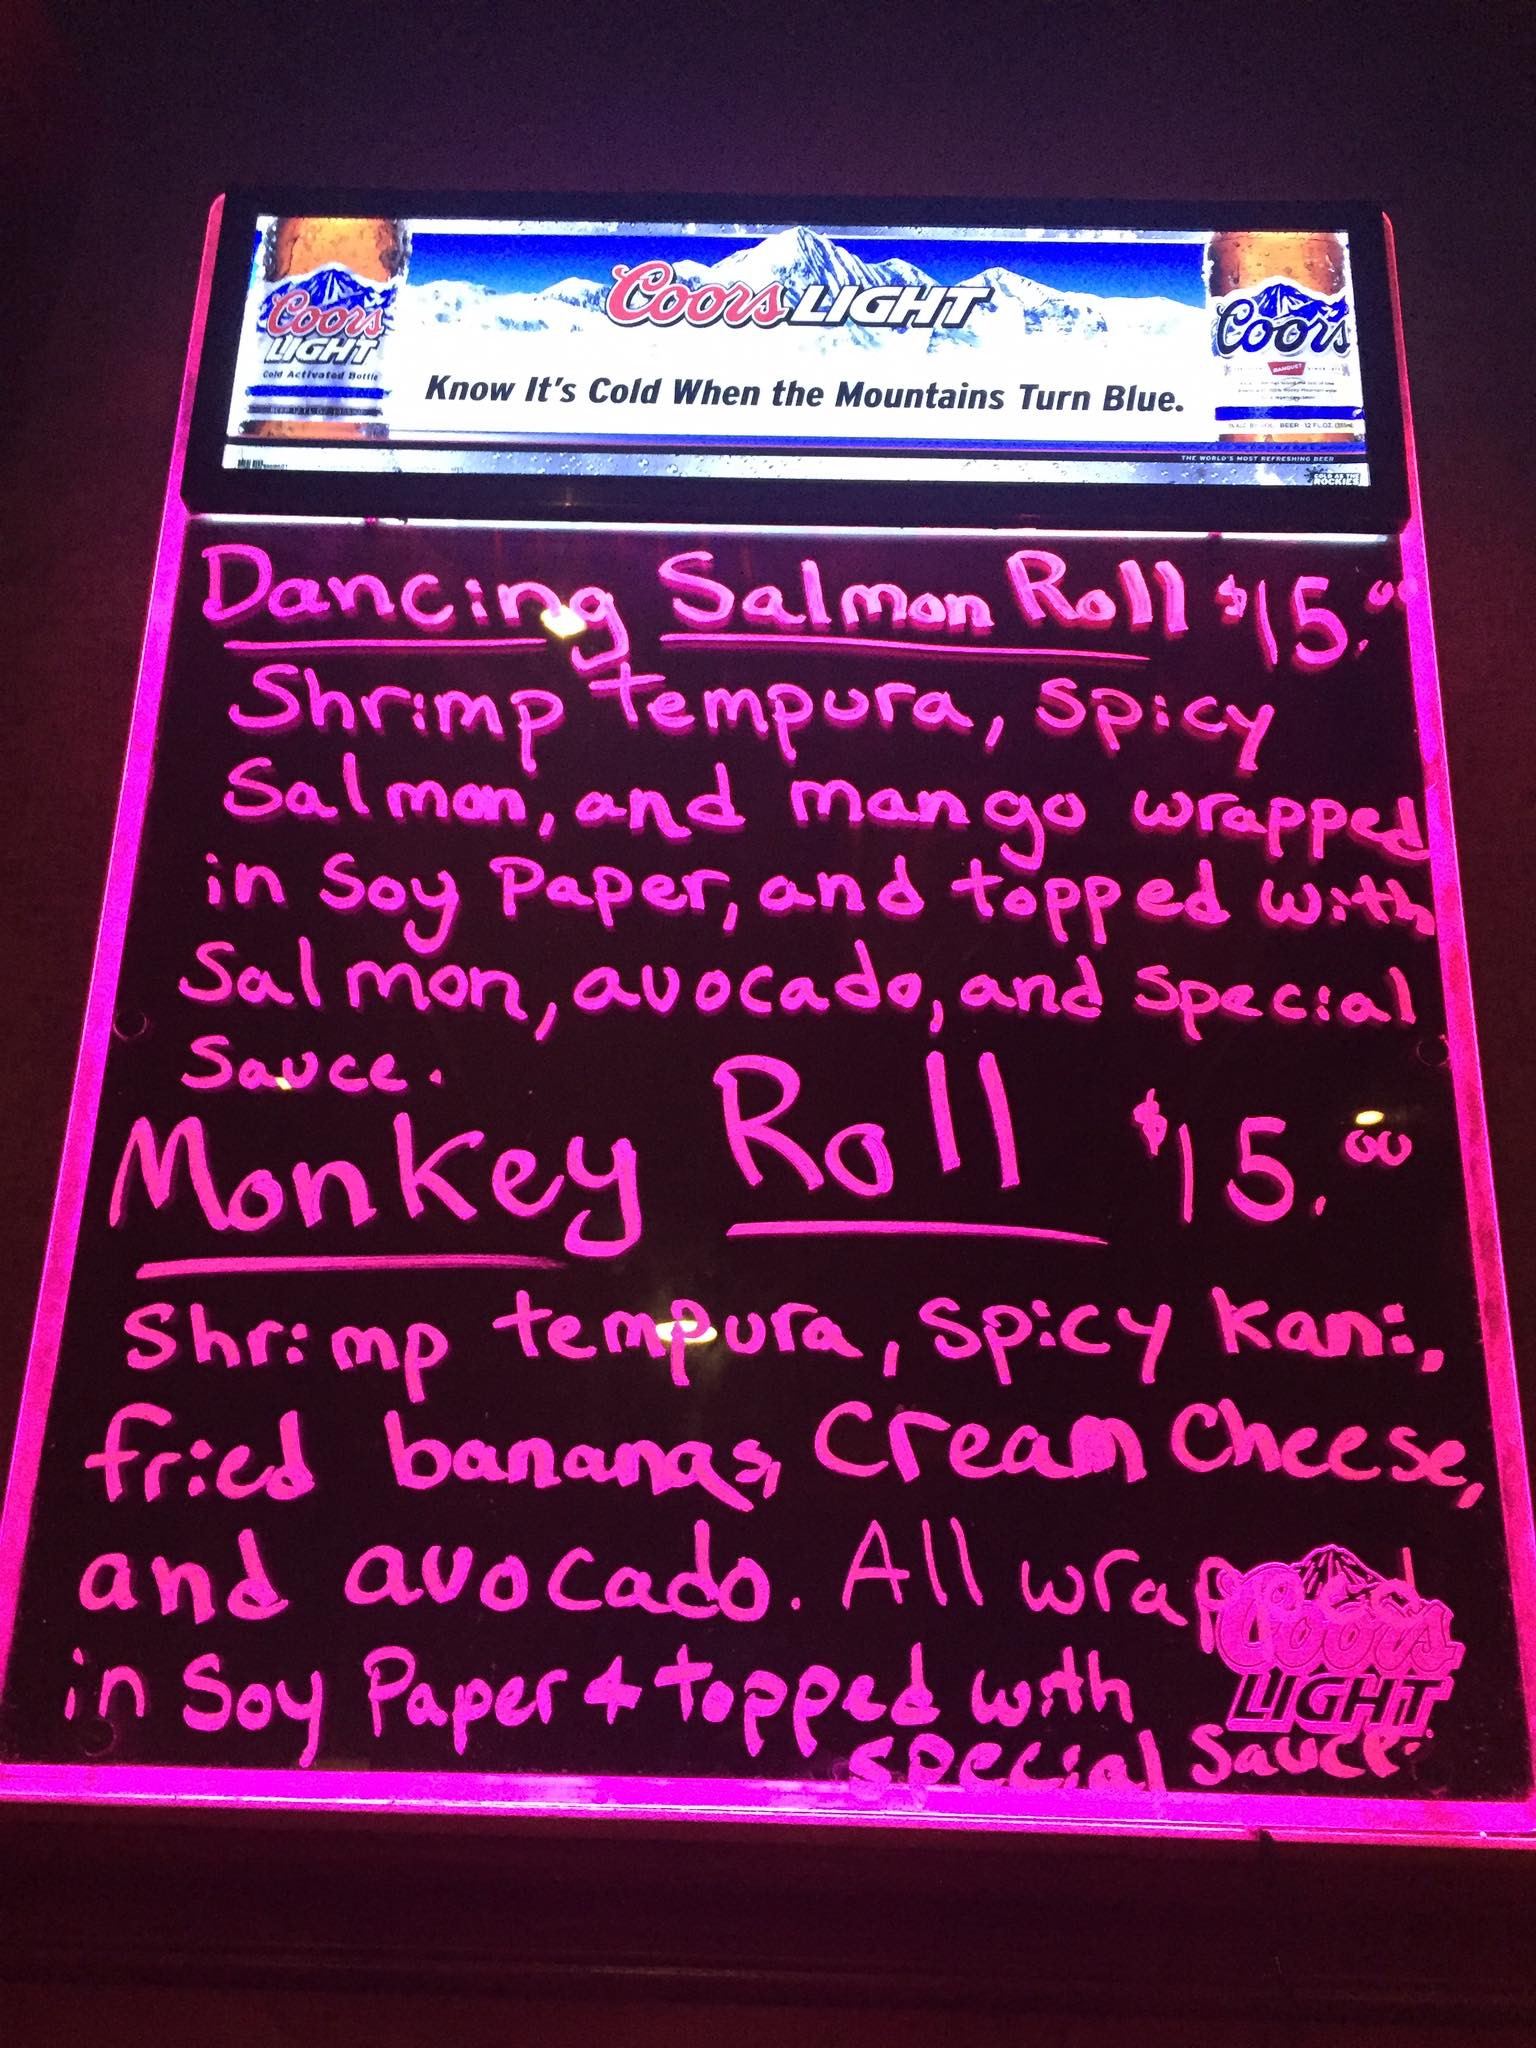 Coors LIGHT
Coors
LIGHT
Cold Activated Bottle
Coors
BANQUET
Know It's Cold When the Mountains Turn Blue.
BEER 12 FL.OZ.
THE WORLD'S MOST REFRESHING BEER
COLD AS THE
ROCKIES
Dancing Salmon Roll $15.00
Shrimp tempura, spicy
Salmon, and mango wrapped
in Soy Paper, and topped with
Salmon, avocado, and special
Sauce.
Monkey Roll $15.00
Shrimp tempura, spicy Kani,
fried bananas, Cream Cheese,
and avocado. All wrapped
in Soy Paper & topped with
special Sauce.
Coors
LIGHT